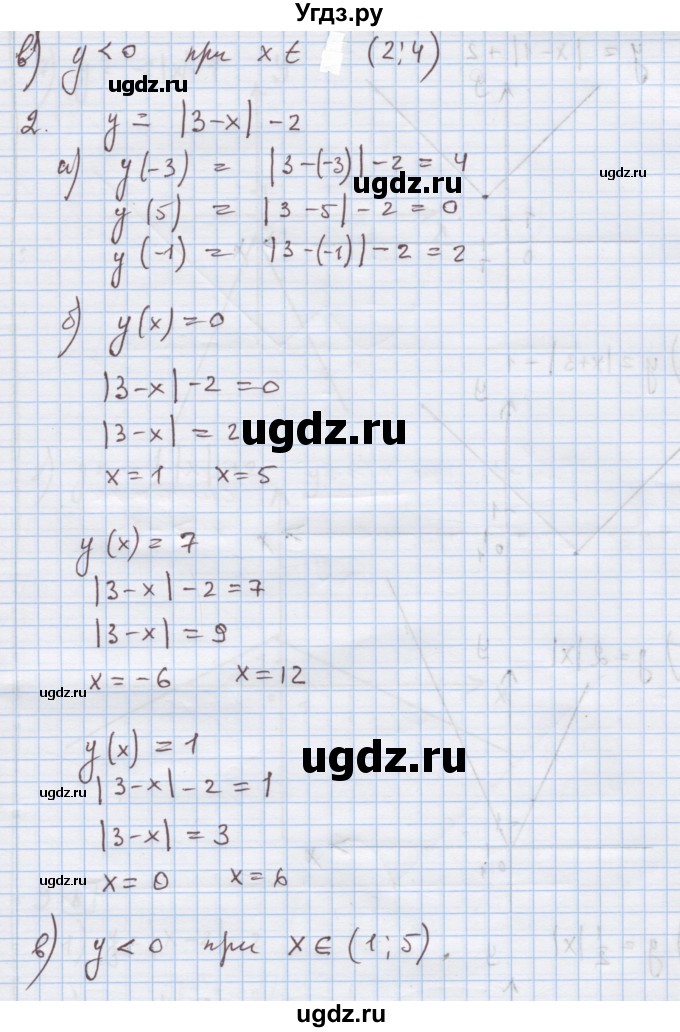 Угдз.ру
в) y < 0 при x ∈ (2; 4)
ugdz.ru
2. y = |3-x| - 2
а) y(-3) = |3-(-3)| - 2 = 4
ugdz.ru
ugdz.ru
ugdz.ru
y(5) = |3-5| - 2 = 0
y(-1) = |3-(-1)| - 2 = 2
б) y(x) = 0
|3-x| - 2 = 0
|3-x| = 2
ugdz.ru
x = 1 x = 5
y(x) = 7
|3-x| - 2 = 7
|3-x| = 9
x = -6 x = 12
ugdz.ru
y(x) = 1
ugdz.ru
|3-x| - 2 = 1
ugdz.ru
|3-x| = 3
x = 0 x = 6
ugdz.ru
в) y < 0 при x ∈ (1; 5).
ugdz.ru